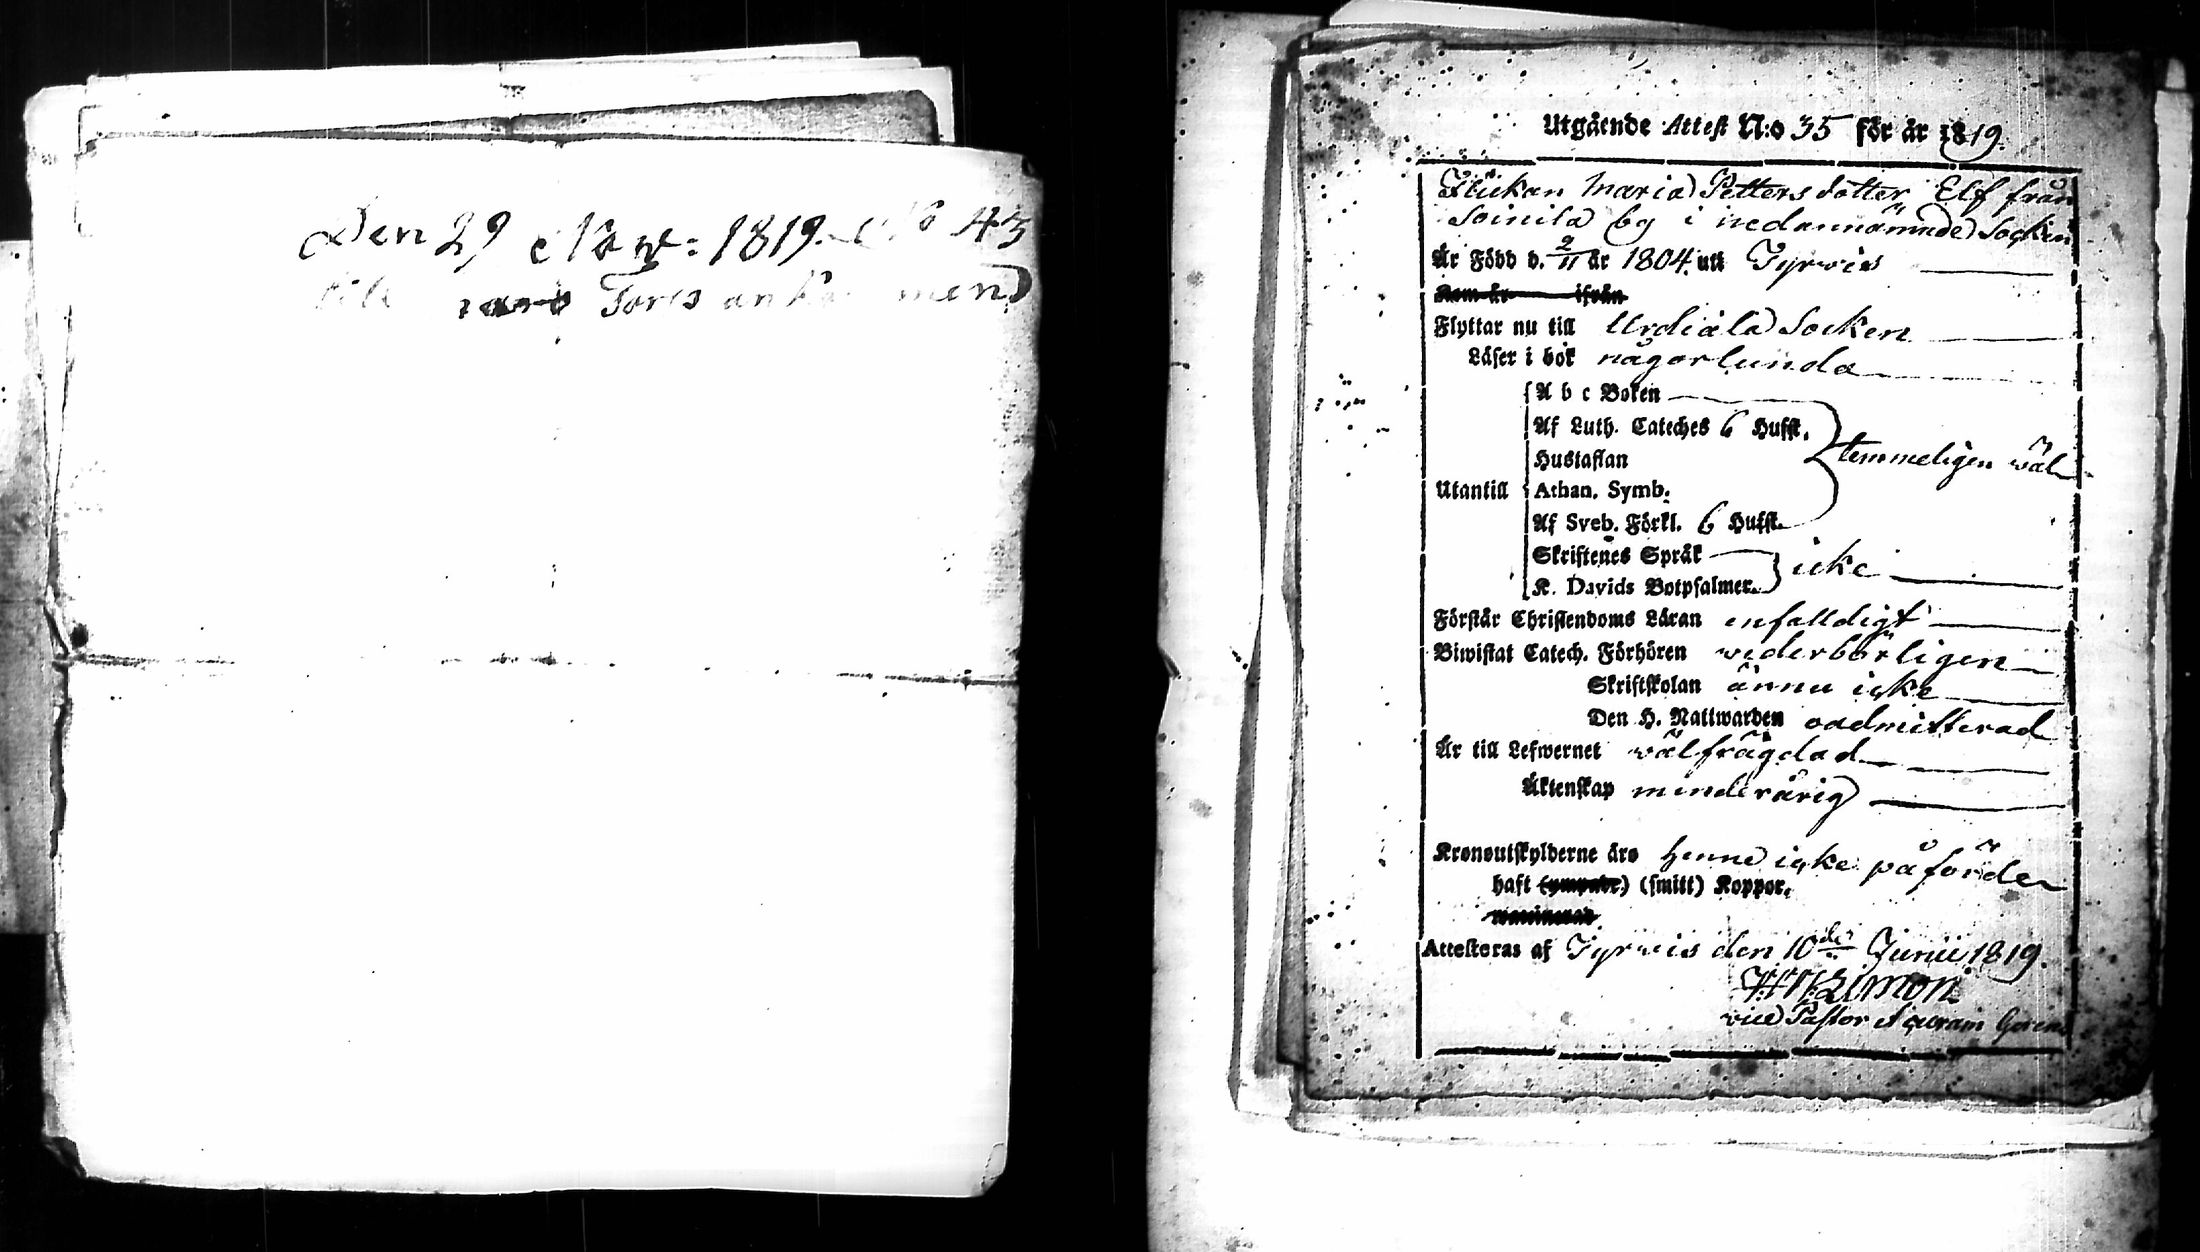 Den 29 Nov: 1819. No 43
till Toris ankommen
Utgående Attest N:o 35 för år 1819.
Flickan Maria Pettersdotter Elf från
Soinila by i nedannämnde Socken
Är Född d. 2/11 år 1804. uti Tyrvis
Kom år ifrån
Flyttar nu till Urdiala Socken
Läser i bok någorlunda
A b c Boken
Af Luth. Cateches 6 Hufst.
Hustaflan
temmeligen väl
Utantill
Athan. Symb.
Af Sveb. Förkl. 6 Hufst.
Skriftenes Språk
icke
K. Davids Botpsalmer.
Förstår Christendoms Läran enfalldigt
Biwistat Catech. Förhören wederbörligen
Skriftskolan ännu icke
Den H. Nattwarden oadmitterad
Är till Lefwernet välfrägdad
Äktenskap minderårig
Kronoutskylderne äro henne icke påförde
haft (ympade) (smitt) Koppor.
vaccinerad
Attesteras af Tyrvis den 10de Junii 1819.
vice Pastor